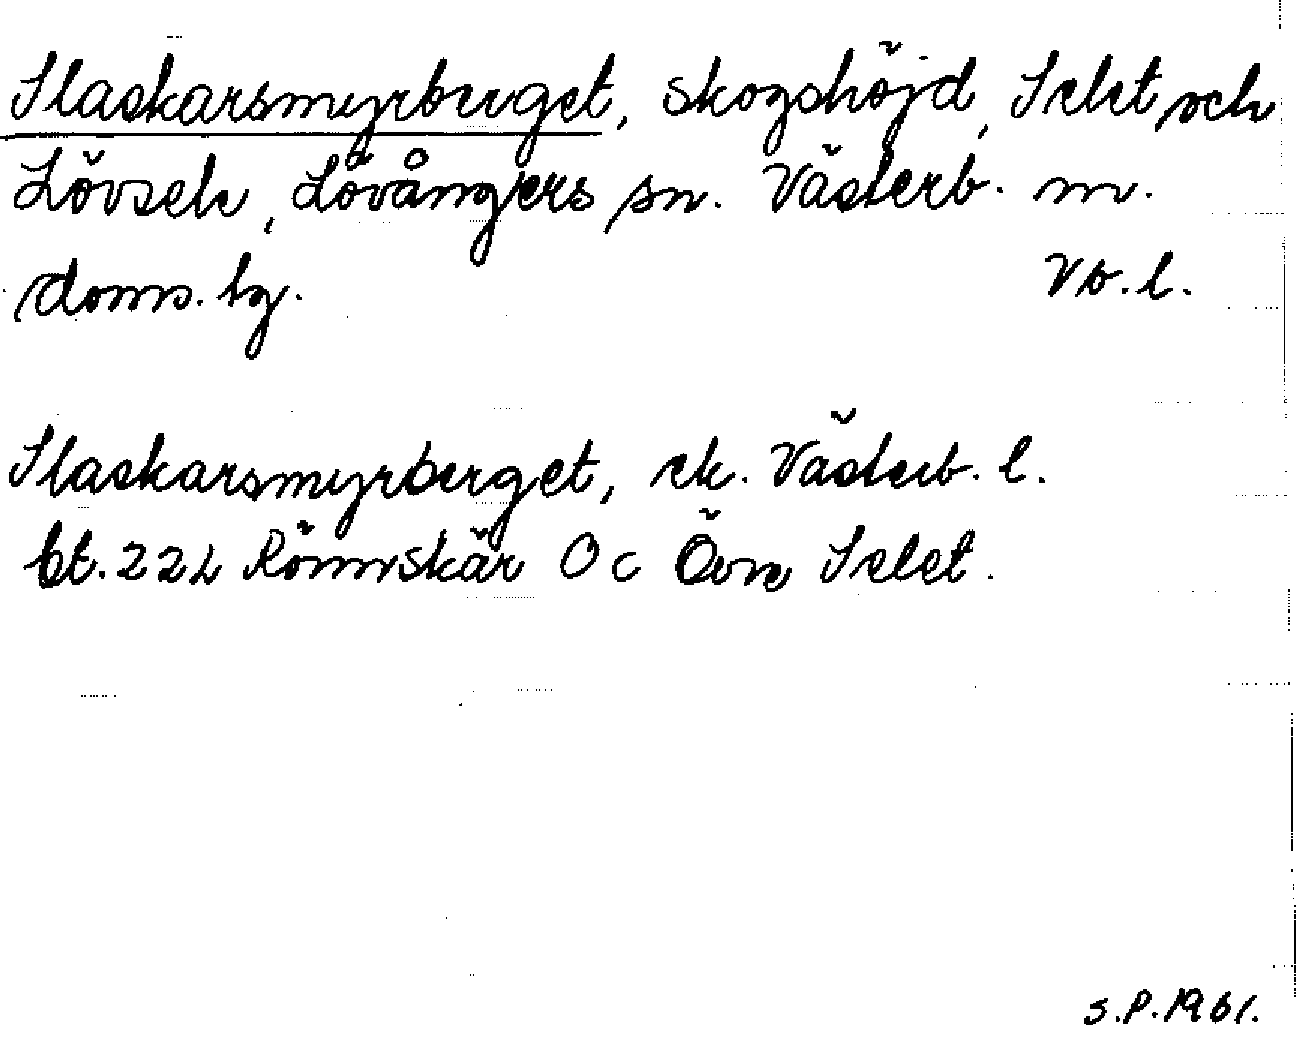 Slaskarsmyrberget, skogshöjd, Selet och
Lövsele, Lövångers sn. Västerb. n.
doms. bg. Vb. l.
Slaskarsmyrberget, ek. Västerb. l.
bl. 222 Rönnskär Oc Övre Selet.
S.P. 1961.